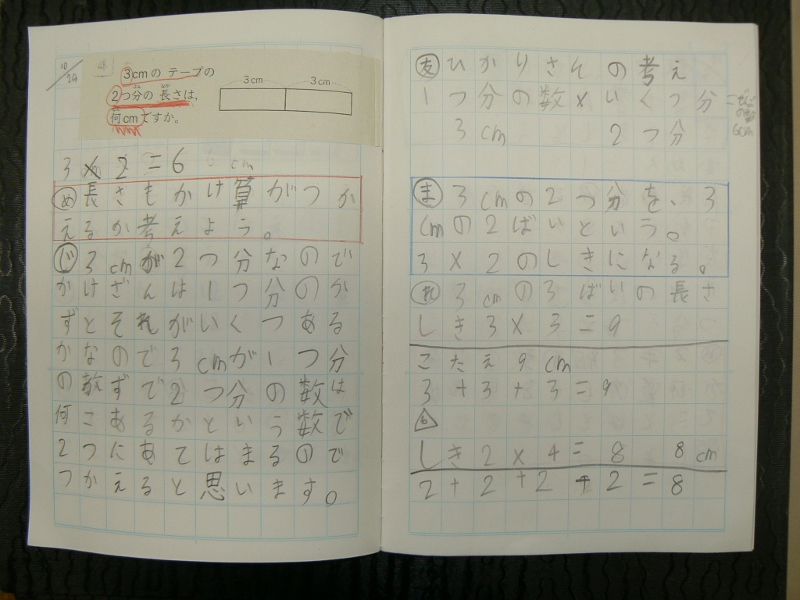 10/24
3cmの テープの
2つ分の 長さは、
何cmですか。
3cm 3cm
3×2=6 cm
め 長さもかけ算がつか
えるか考えよう。
じ 3cmが2つ分なので
かけざんは1つ分のか
ずとそれがいくつある
かなので3cmが1つ分
の数ずで2つ分の数は
何こあるかという数で
2つにあてはまるので
つかえると思います。
友 ひかりさんの考え
1つ分の数×いくつ分
3cm 2つ分
6cm
ま 3cmの2つ分を、3
cmの2ばいという。
3×2のしきになる。
れ 3cmの3ばいの長さ
しき3×3=9
こたえ9cm
3+3+3=9
6
しき2×4=8 8cm
2+2+2+2=8